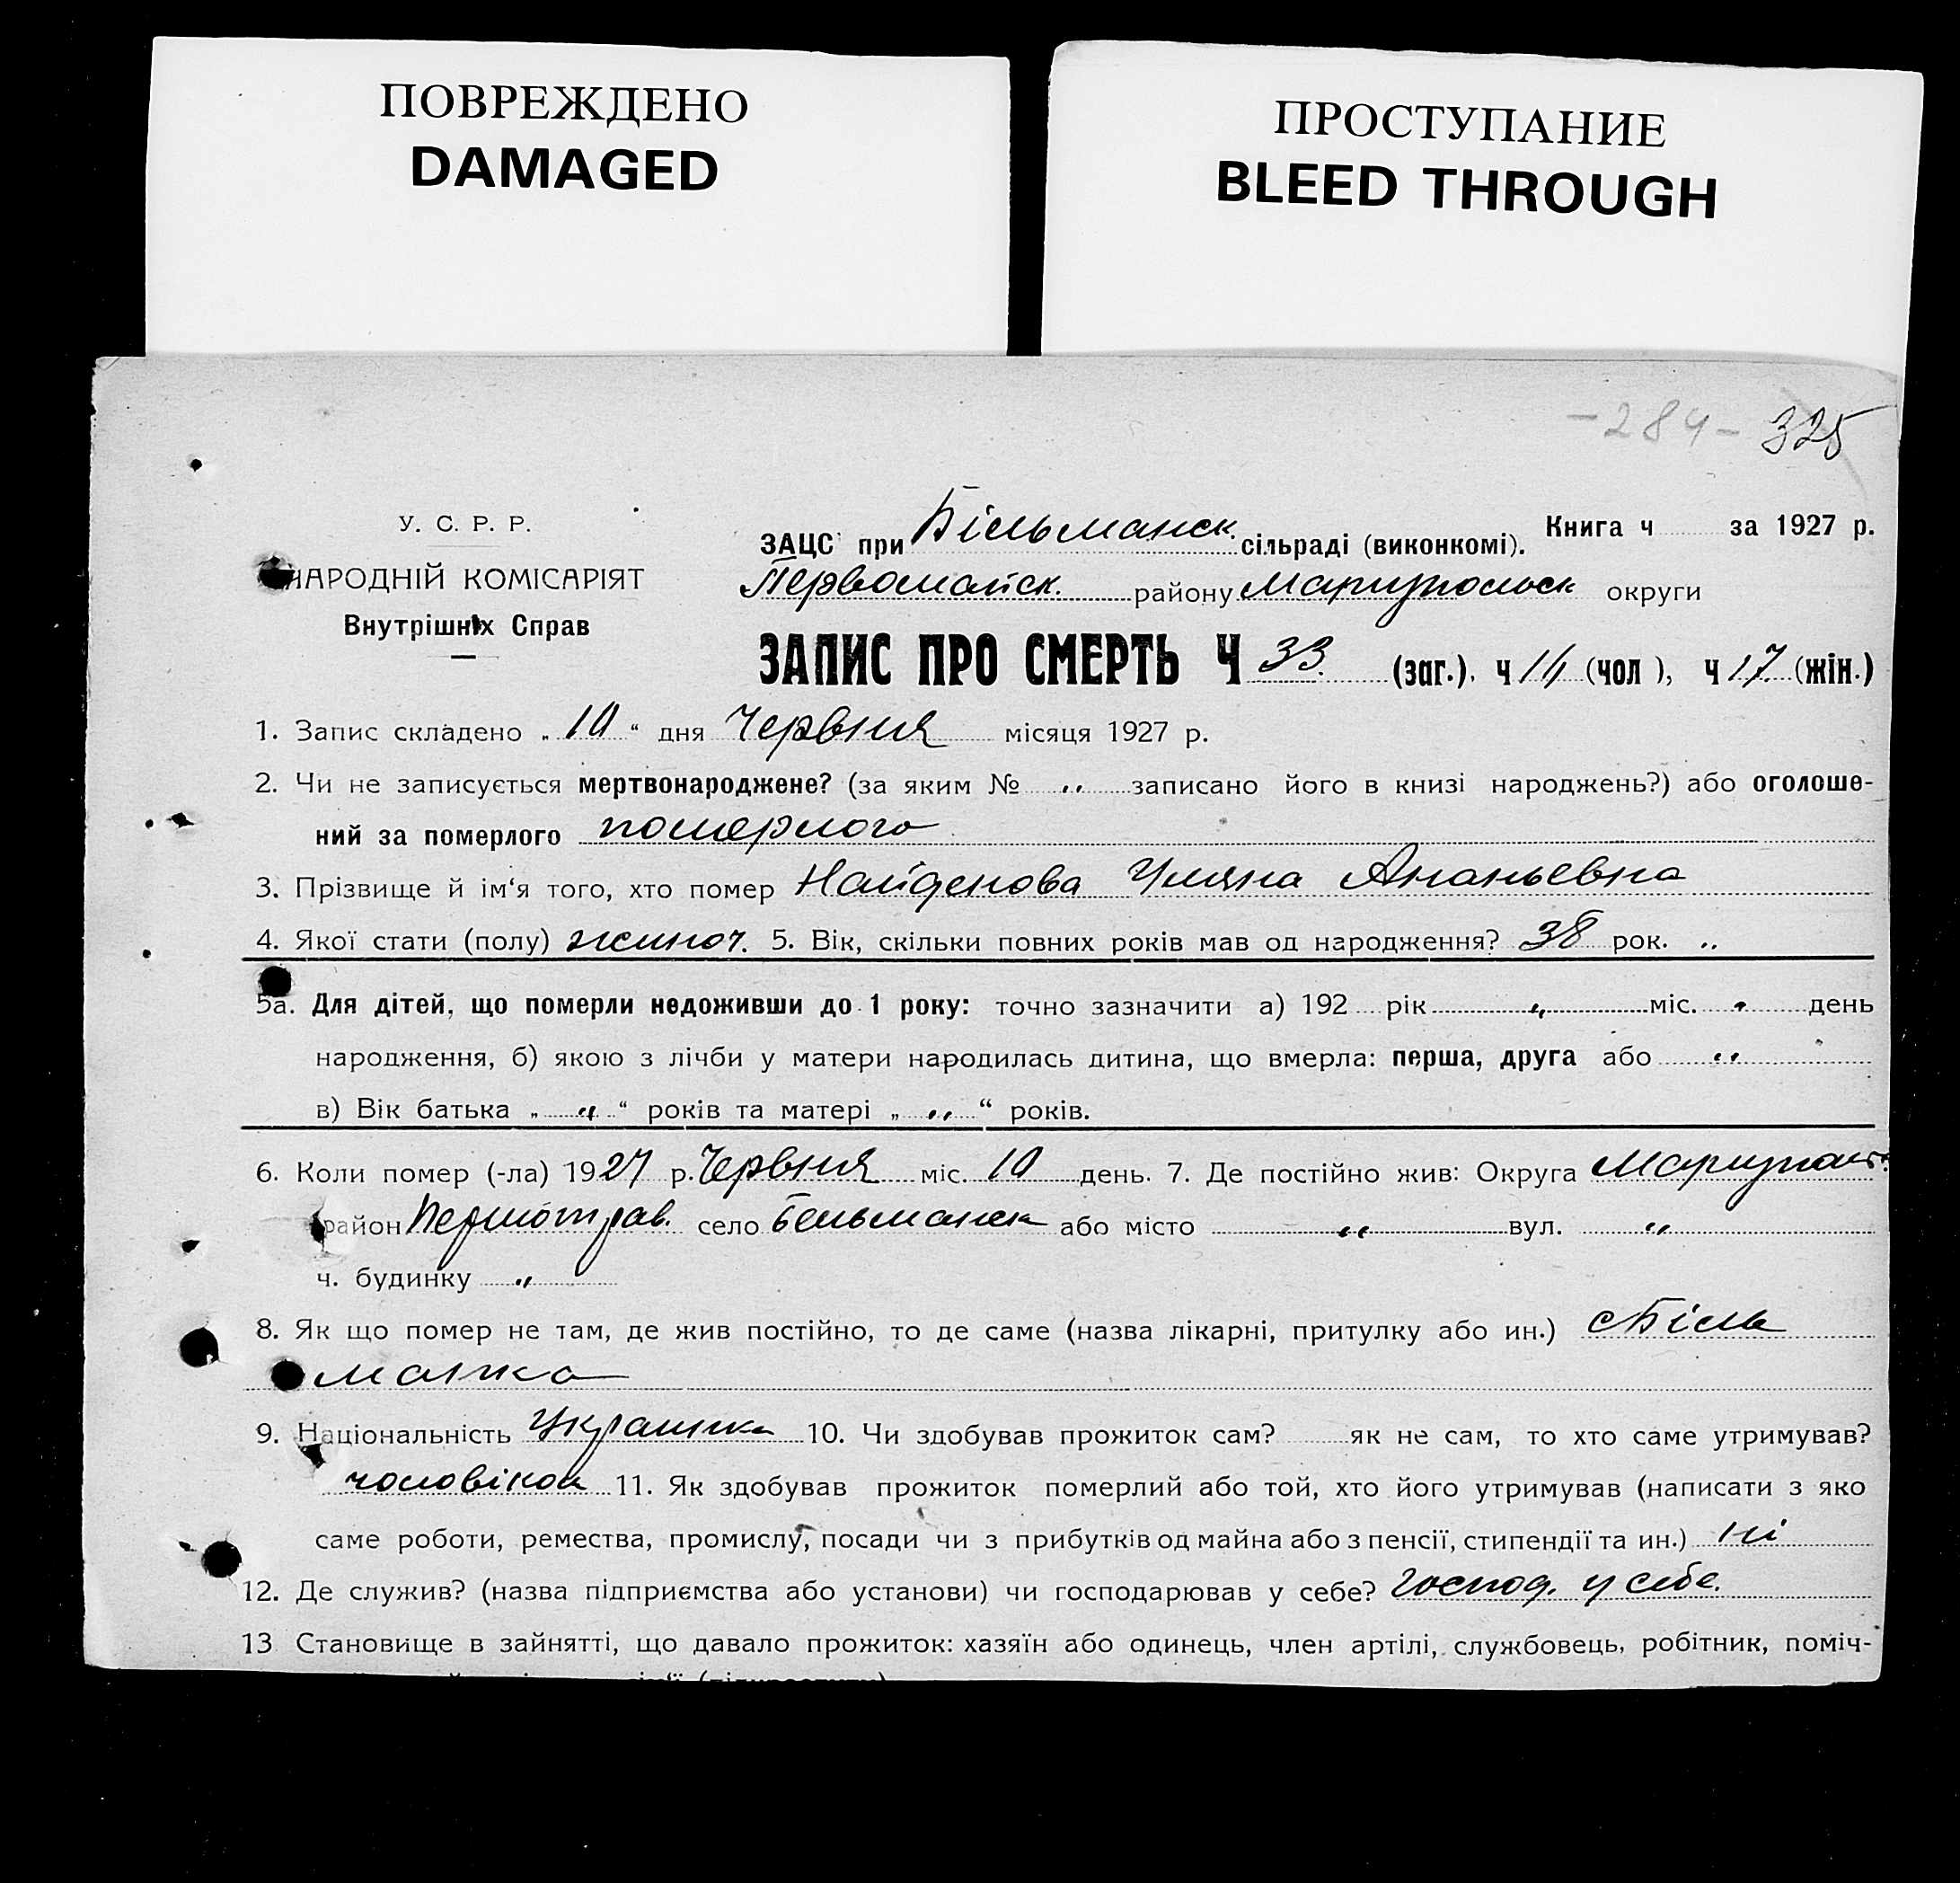 ПОВРЕЖДЕНО
DAMAGED
ПРОСТУПАНИЕ
BLEED THROUGH
-284- 325
У. С. Р. Р.
НАРОДНІЙ КОМІСАРІЯТ
Внутрішніх Справ
Книга ч за 1927 р.
ЗАЦС при Більманск. сільраді (виконкомі).
Первомайск. району Мариупольск округи
ЗАПИС ПРО СМЕРТЬ Ч 33. (заг.). ч (чол ), ч 17. (жін.)
1. Запис складено „ 10 “ дня Червня місяця 1927 р.
2. Чи не записується мертвонароджене? (за яким № „ записано його в книзі народжень?) або оголоше-
ний за померлого померлого
3. Прізвище й ім‘я того, хто помер Найденова Уляна Ананьевна
4. Якої стати (полу) жиноч. 5. Вік, скільки повних років мав од народження? 38 рок. „
5а. Для дітей, що померли недоживши до 1 року: точно зазначити а) 192 рік „ міс. „ день
народження, б) якою з лічби у матери народилась дитина, що вмерла: перша, друга або „
в) Вік батька „ „ “ років та матері „ „ “ років.
6. Коли помер (-ла) 1927 р. Червня міс. 10 день. 7. Де постійно жив: Округа
район Першотрав. село Бельманск або місто „ вул. „
ч. будинку „
8. Як що помер не там, де жив постійно, то де саме (назва лікарні, притулку або ин.) с Біль
манка
9. Національність Украинка 10. Чи здобував прожиток сам? як не сам, то хто саме утримував?
чоловіком 11. Як здобував прожиток померлий або той, хто його утримував (написати з яко
саме роботи, ремества, промислу, посади чи з прибутків од майна або з пенсії, стипендії та ин.) ні
12. Де служив? (назва підприємства або установи) чи господарював у себе? Господ. у себе.
13 Становище в зайнятті, що давало прожиток: хазяїн або одинець, член артілі, службовець, робітник, поміч-